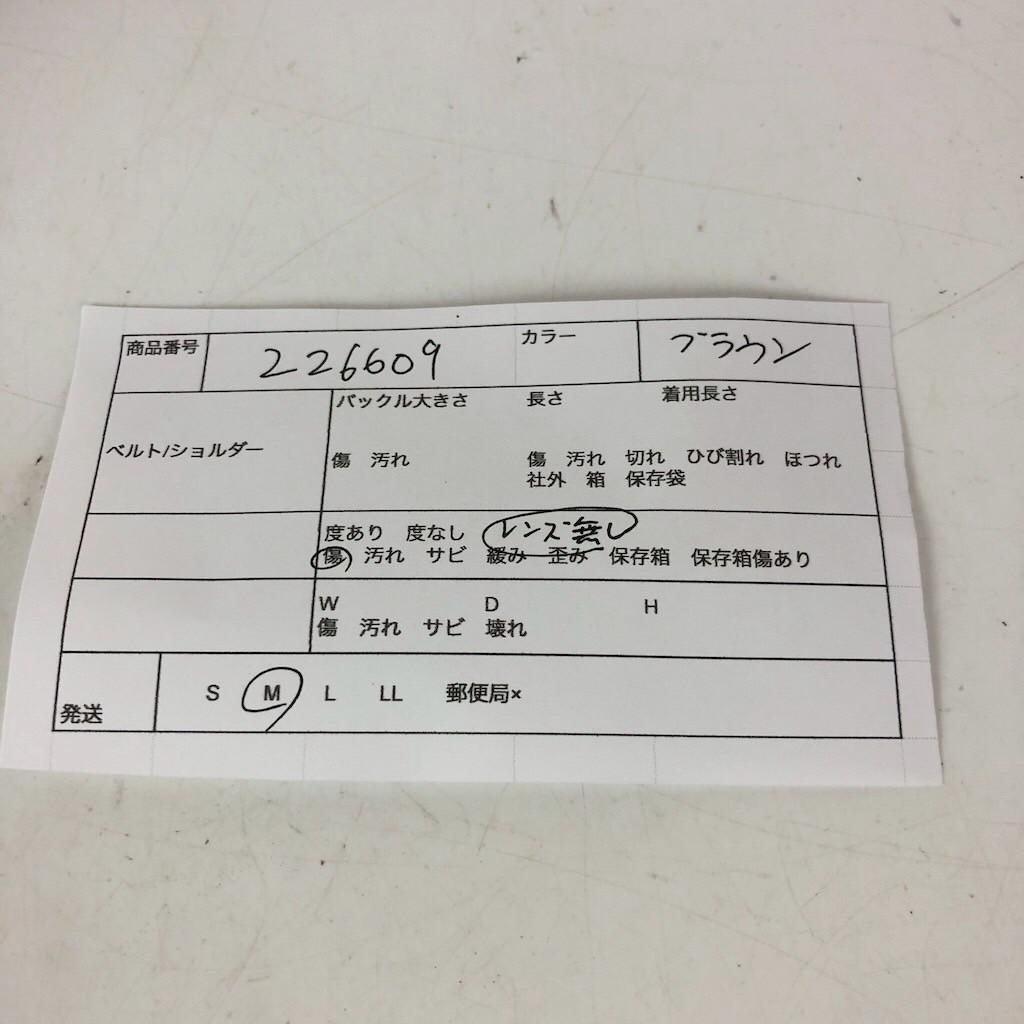 商品番号 226609 カラー ブラウン
バックル大きさ 長さ 着用長さ
ベルト/ショルダー
傷 汚れ 傷 汚れ 切れ ひび割れ ほつれ
社外 箱 保存袋
度あり 度なし レンズ無し
傷 汚れ サビ 緩み 歪み 保存箱 保存箱傷あり
W D H
傷 汚れ サビ 壊れ
発送 S M L LL 郵便局×